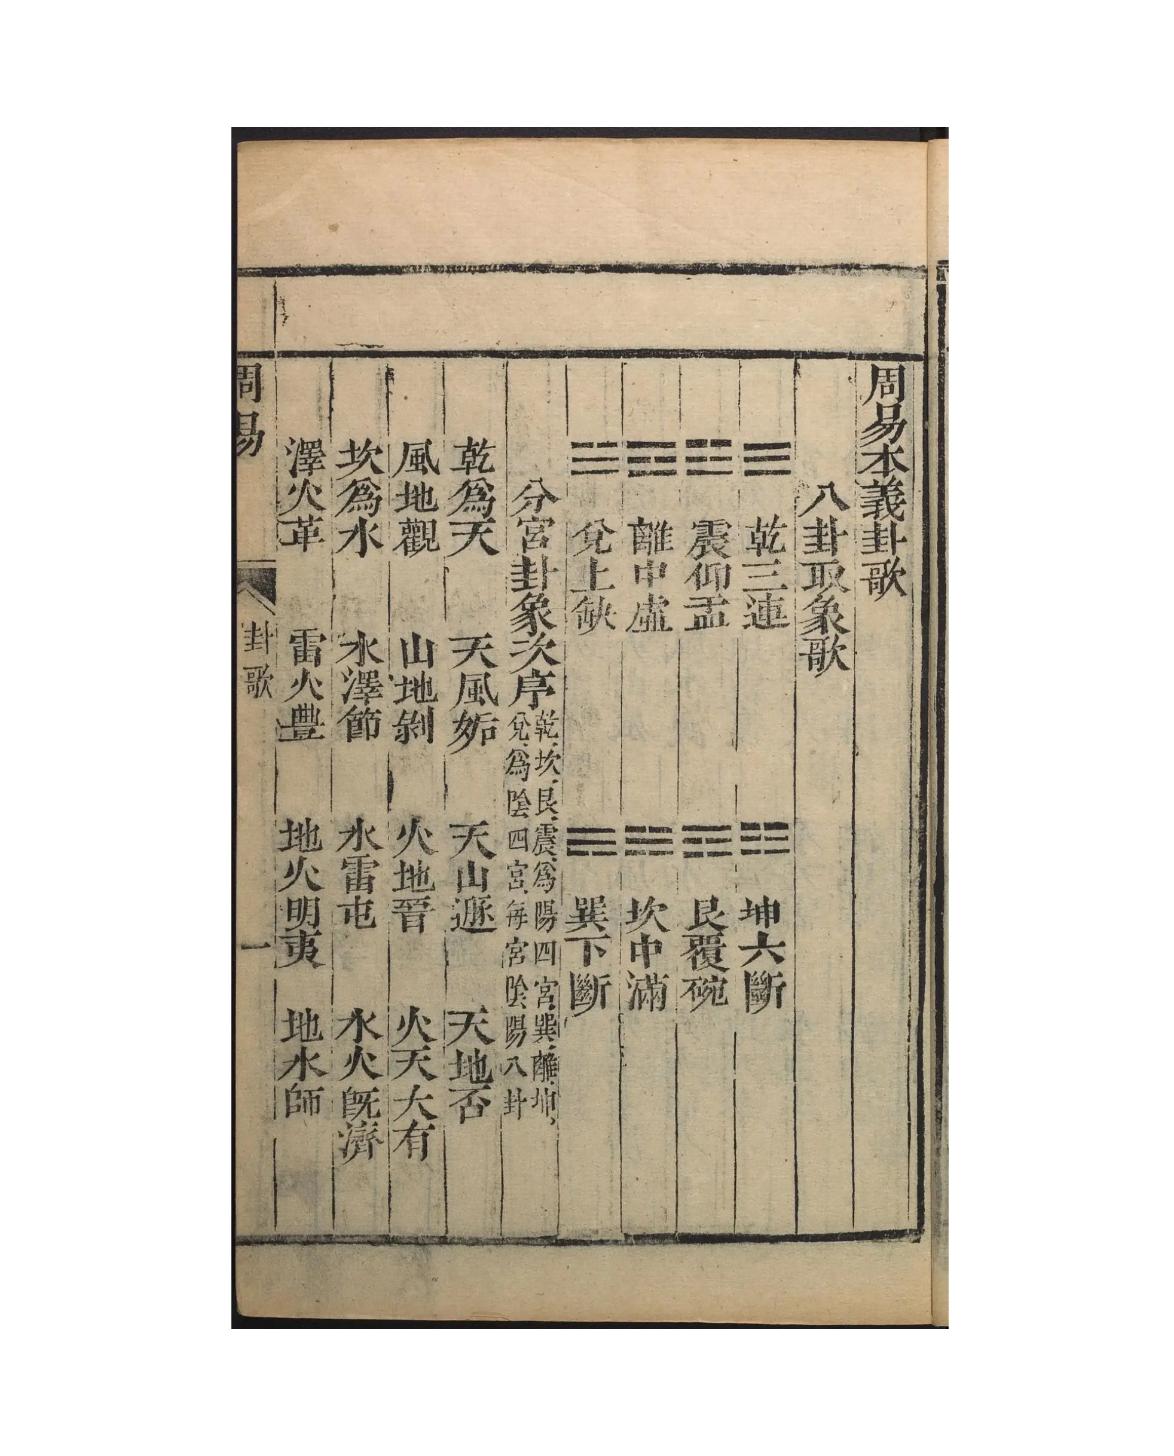 周易本義卦歌
八卦取象歌
☰ 乾三連 ☷ 坤六斷
☳ 震仰盂 ☶ 艮覆碗
☲ 離中虛 ☵ 坎中滿
☱ 兌上缺 ☴ 巽下斷
分宮卦象次序 乾、坎、艮、震、爲陽四宮、巽、離、坤、
兌、爲陰四宮、每宮陰陽八卦
乾爲天 天風姤 天山遯 天地否
風地觀 山地剝 火地晉 火天大有
坎爲水 水澤節 水雷屯 水火旣濟
澤火革 雷火豐 地火明夷 地水師
周易 卦歌 一